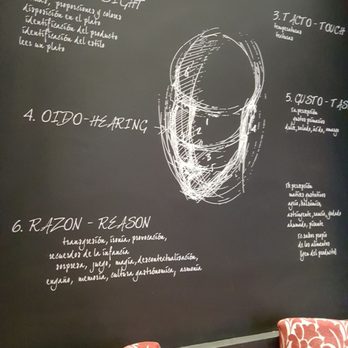 SIGHT
proporciones y colores
disposición en el plato
identificación del producto
identificación del estilo
lees un plato
3. TACTO-TOUCH
temperaturas
texturas
4. OIDO-HEARING
1
2
3
4
5. GUSTO-TAS
percepción
gustos primarios
dulce, salado, ácido, amargo
percepción
matices
agrio, balsámico,
astringente, rancio,
ahumado, picante
de los alimentos
fuera del producto
6. RAZON - REASON
transgresión, ironía, provocación,
recuerdos de la infancia
sorpresa, juego, magia, descontextualización,
engaño, memoria, cultura gastronómica, armonía